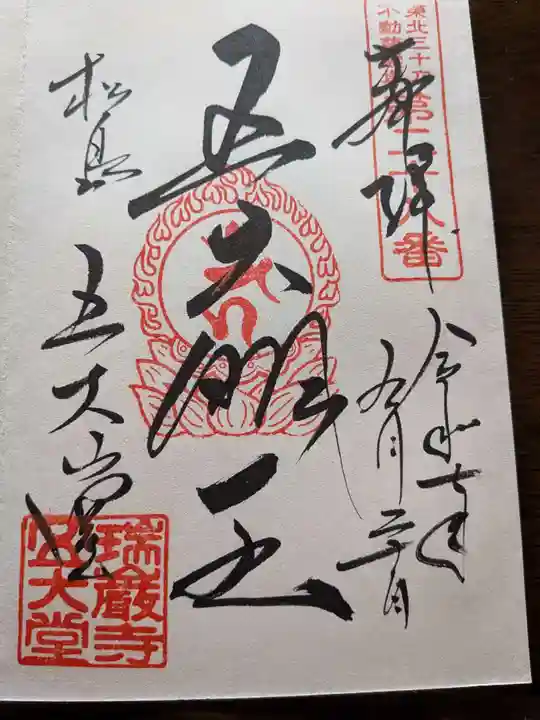 東北三十六
不動尊霊場
第二十八番
奉拝
令和七年
九月二十日
五大明王
松島
五大堂
瑞巌寺
五大堂